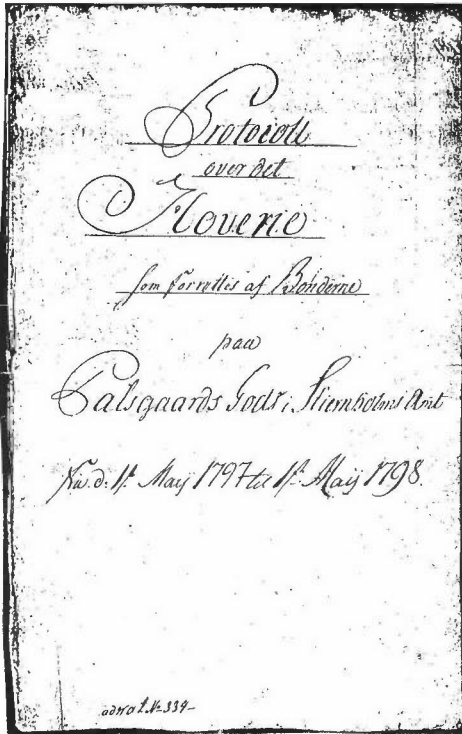 Protocoll
over det
Hoverie
som forrettes af Bönderne
paa
Palsgaards Gods i Stiernholms Amt
Fra d: 1t May 1797 til 1t Maij 1798.
No 334